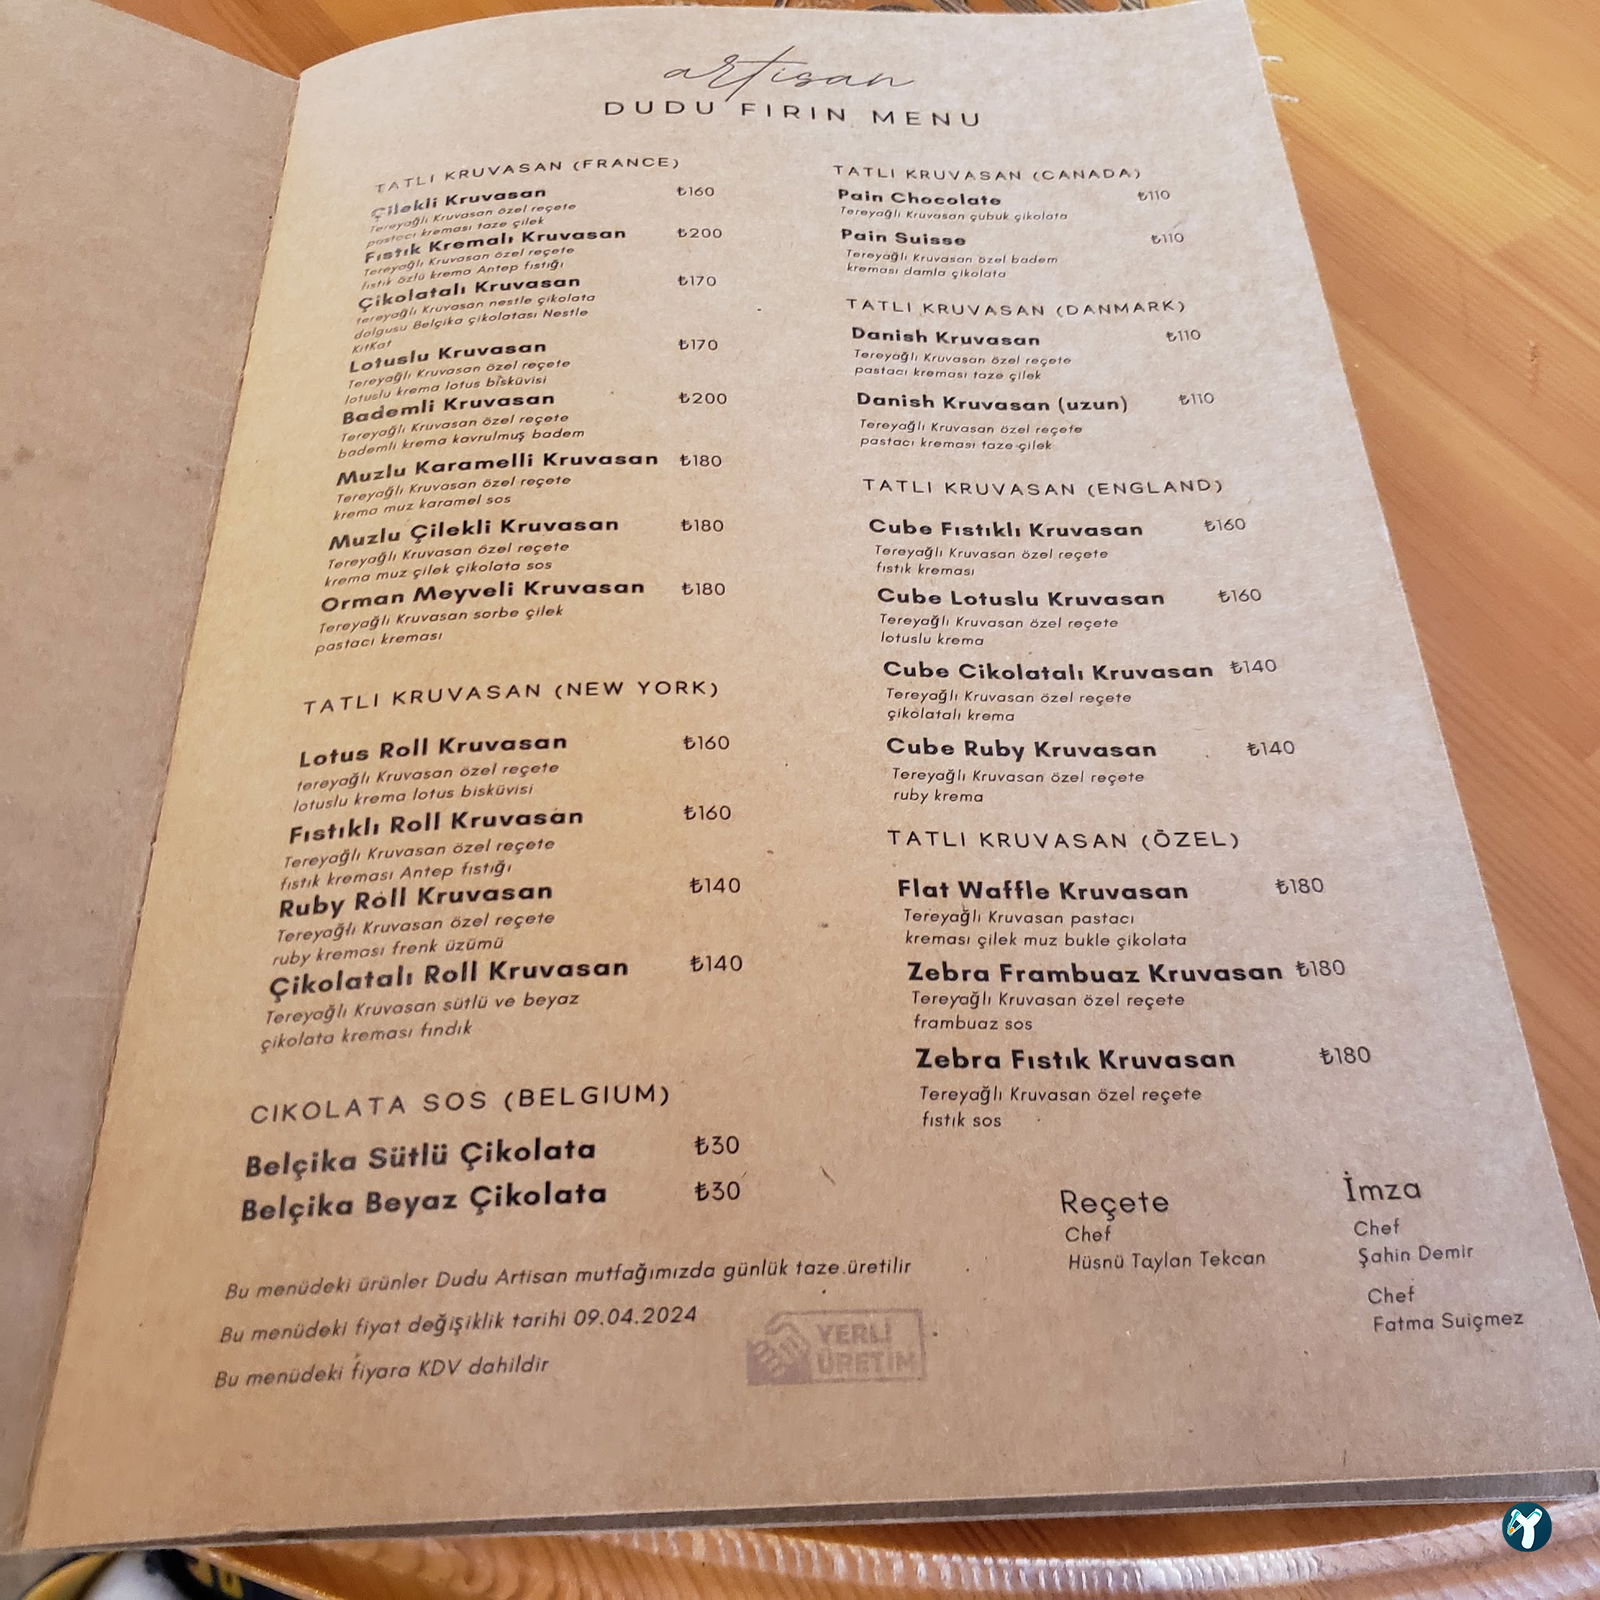 artisan
DUDU FIRIN MENU
TATLI KRUVASAN (FRANCE)
Çilekli Kruvasan ₺160
Tereyağlı Kruvasan özel reçete
pastacı kreması taze çilek
Fıstık Kremalı Kruvasan ₺200
Tereyağlı Kruvasan özel reçete
fıstık özlü krema Antep fıstığı
Çikolatalı Kruvasan ₺170
tereyağlı Kruvasan nestle çikolata
dolgusu Belçika çikolatası Nestle
KitKat
Lotuslu Kruvasan ₺170
Tereyağlı Kruvasan özel reçete
lotuslu krema lotus bisküvisi
Bademli Kruvasan ₺200
Tereyağlı Kruvasan özel reçete
bademli krema kavrulmuş badem
Muzlu Karamelli Kruvasan ₺180
Tereyağlı Kruvasan özel reçete
krema muz karamel sos
Muzlu Çilekli Kruvasan ₺180
Tereyağlı Kruvasan özel reçete
krema muz çilek çikolata sos
Orman Meyveli Kruvasan ₺180
Tereyağlı Kruvasan sorbe çilek
pastacı kreması
TATLI KRUVASAN (NEW YORK)
Lotus Roll Kruvasan ₺160
tereyağlı Kruvasan özel reçete
lotuslu krema lotus bisküvisi
Fıstıklı Roll Kruvasan ₺160
Tereyağlı Kruvasan özel reçete
fıstık kreması Antep fıstığı
Ruby Roll Kruvasan ₺140
Tereyağlı Kruvasan özel reçete
ruby kreması frenk üzümü
Çikolatalı Roll Kruvasan ₺140
Tereyağlı Kruvasan sütlü ve beyaz
çikolata kreması fındık
CIKOLATA SOS (BELGIUM)
Belçika Sütlü Çikolata ₺30
Belçika Beyaz Çikolata ₺30
Bu menüdeki ürünler Dudu Artisan mutfağımızda günlük taze üretilir
Bu menüdeki fiyat değişiklik tarihi 09.04.2024
Bu menüdeki fiyara KDV dahildir
YERLİ
ÜRETİM
TATLI KRUVASAN (CANADA)
Pain Chocolate ₺110
Tereyağlı Kruvasan çubuk çikolata
Pain Suisse ₺110
Tereyağlı Kruvasan özel badem
kreması damla çikolata
TATLI KRUVASAN (DANMARK)
Danish Kruvasan ₺110
Tereyağlı Kruvasan özel reçete
pastacı kreması taze çilek
Danish Kruvasan (uzun) ₺110
Tereyağlı Kruvasan özel reçete
pastacı kreması taze çilek
TATLI KRUVASAN (ENGLAND)
Cube Fıstıklı Kruvasan ₺160
Tereyağlı Kruvasan özel reçete
fıstık kreması
Cube Lotuslu Kruvasan ₺160
Tereyağlı Kruvasan özel reçete
lotuslu krema
Cube Cikolatalı Kruvasan ₺140
Tereyağlı Kruvasan özel reçete
çikolatalı krema
Cube Ruby Kruvasan ₺140
Tereyağlı Kruvasan özel reçete
ruby krema
TATLI KRUVASAN (ÖZEL)
Flat Waffle Kruvasan ₺180
Tereyağlı Kruvasan pastacı
kreması çilek muz bukle çikolata
Zebra Frambuaz Kruvasan ₺180
Tereyağlı Kruvasan özel reçete
frambuaz sos
Zebra Fıstık Kruvasan ₺180
Tereyağlı Kruvasan özel reçete
fıstık sos
Reçete
Chef
Hüsnü Taylan Tekcan
İmza
Chef
Şahin Demir
Chef
Fatma Suiçmez